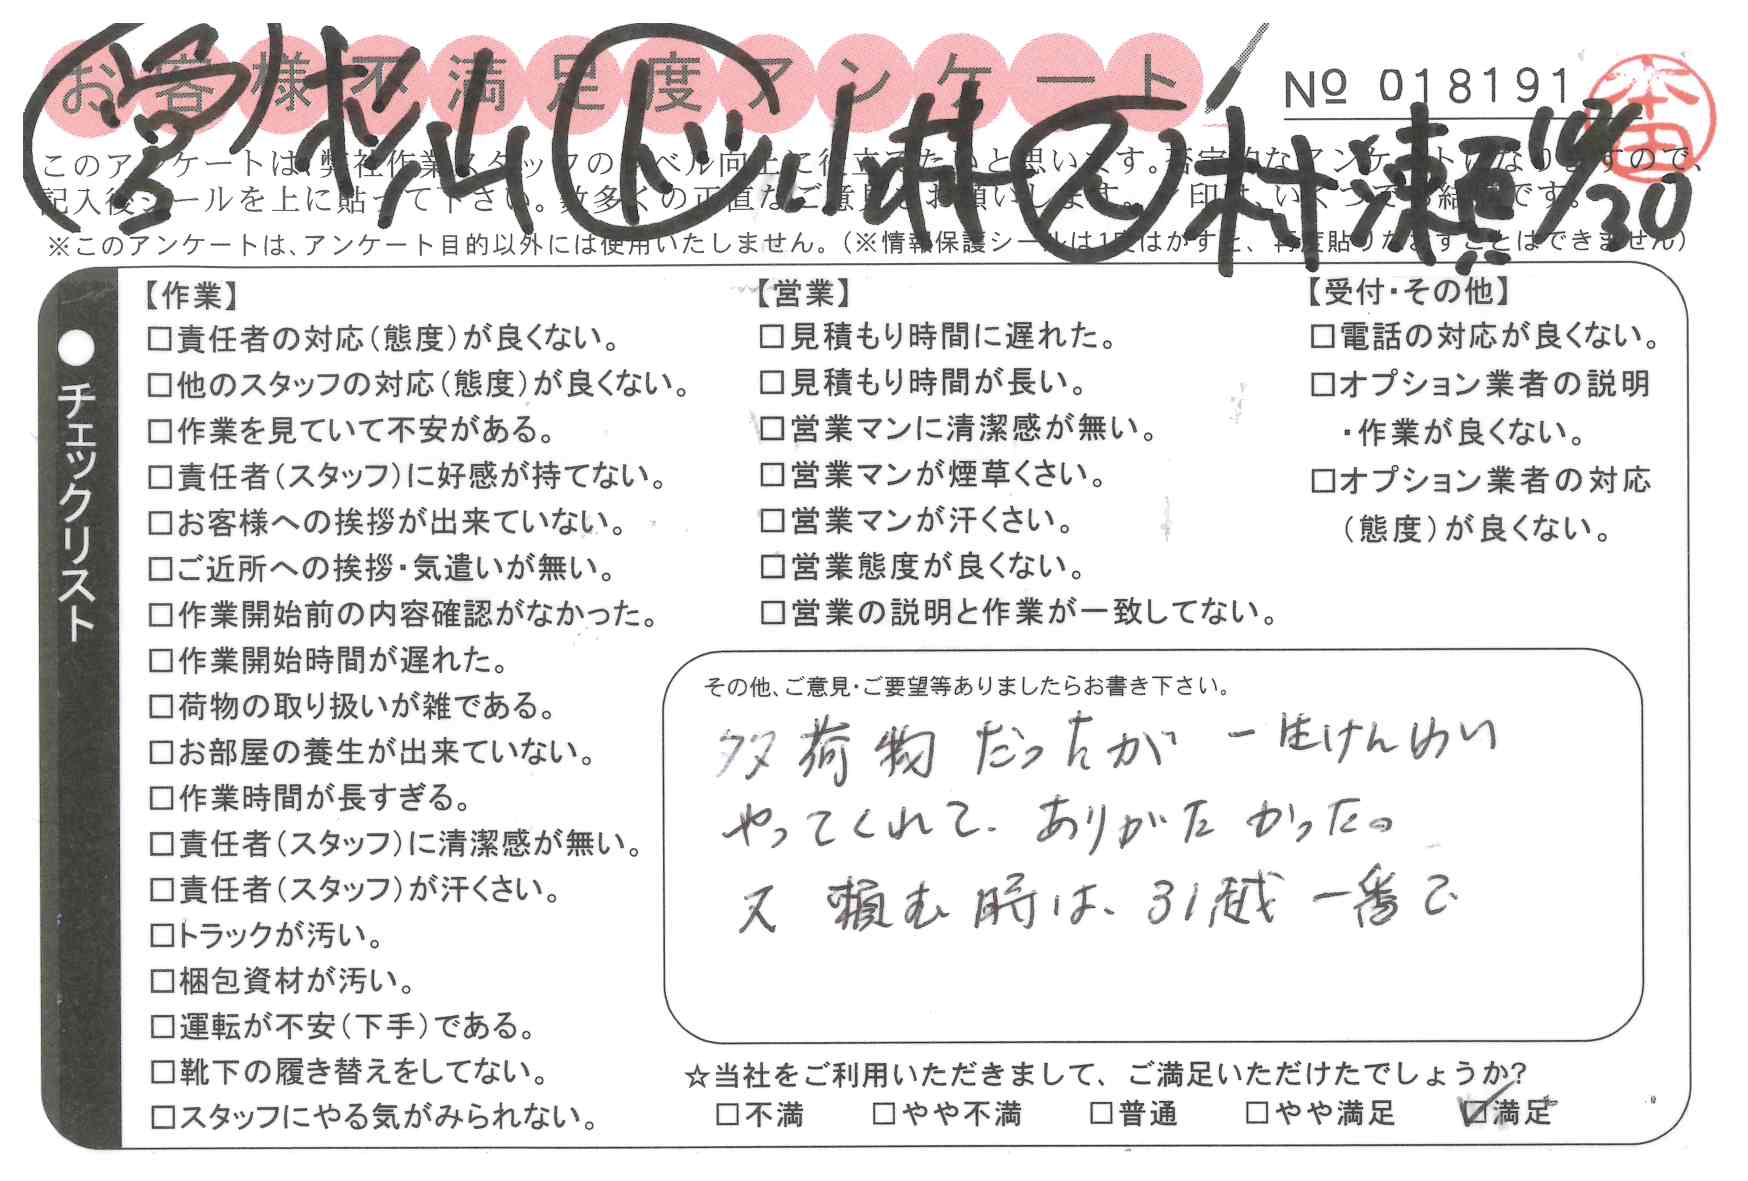 お客様不満足度アンケート
№ 018191
本田
営 杉山 ド 小林 ス 村瀬 10/30
このアンケートは、弊社作業スタッフのレベル向上に役立てたいと思います。否定的なアンケートになりますので、
記入後シールを上に貼って下さい。数多くの正直なご意見をお願いします。✓印は、いくつでも結構です。
※このアンケートは、アンケート目的以外には使用いたしません。（※情報保護シールは1度はがすと、再度貼りなおすことはできません）
●チェックリスト
【作業】
□責任者の対応（態度）が良くない。
□他のスタッフの対応（態度）が良くない。
□作業を見ていて不安がある。
□責任者（スタッフ）に好感が持てない。
□お客様への挨拶が出来ていない。
□ご近所への挨拶・気遣いが無い。
□作業開始前の内容確認がなかった。
□作業開始時間が遅れた。
□荷物の取り扱いが雑である。
□お部屋の養生が出来ていない。
□作業時間が長すぎる。
□責任者（スタッフ）に清潔感が無い。
□責任者（スタッフ）が汗くさい。
□トラックが汚い。
□梱包資材が汚い。
□運転が不安（下手）である。
□靴下の履き替えをしてない。
□スタッフにやる気がみられない。
【営業】
□見積もり時間に遅れた。
□見積もり時間が長い。
□営業マンに清潔感が無い。
□営業マンが煙草くさい。
□営業マンが汗くさい。
□営業態度が良くない。
□営業の説明と作業が一致してない。
【受付・その他】
□電話の対応が良くない。
□オプション業者の説明
・作業が良くない。
□オプション業者の対応
（態度）が良くない。
その他、ご意見・ご要望等ありましたらお書き下さい。
多荷物だったが一生けんめい
やってくれて、ありがたかった。
又頼む時は、引越一番で
☆当社をご利用いただきまして、ご満足いただけたでしょうか?
□不満 □やや不満 □普通 □やや満足 ☑満足